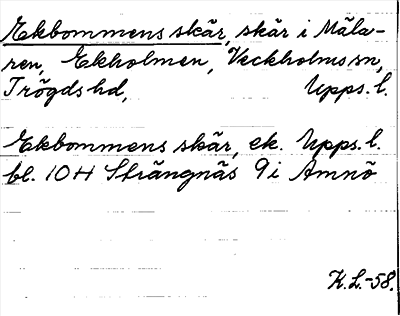 Ekbommens skär, skär i Mäla-
ren, Ekholmen, Veckholms sn,
Trögds hd, Upps. l.
Ekbommens skär, ek. Upps. l.
bl. 10 H Strängnäs 9 i Amnö
K.L.-58.